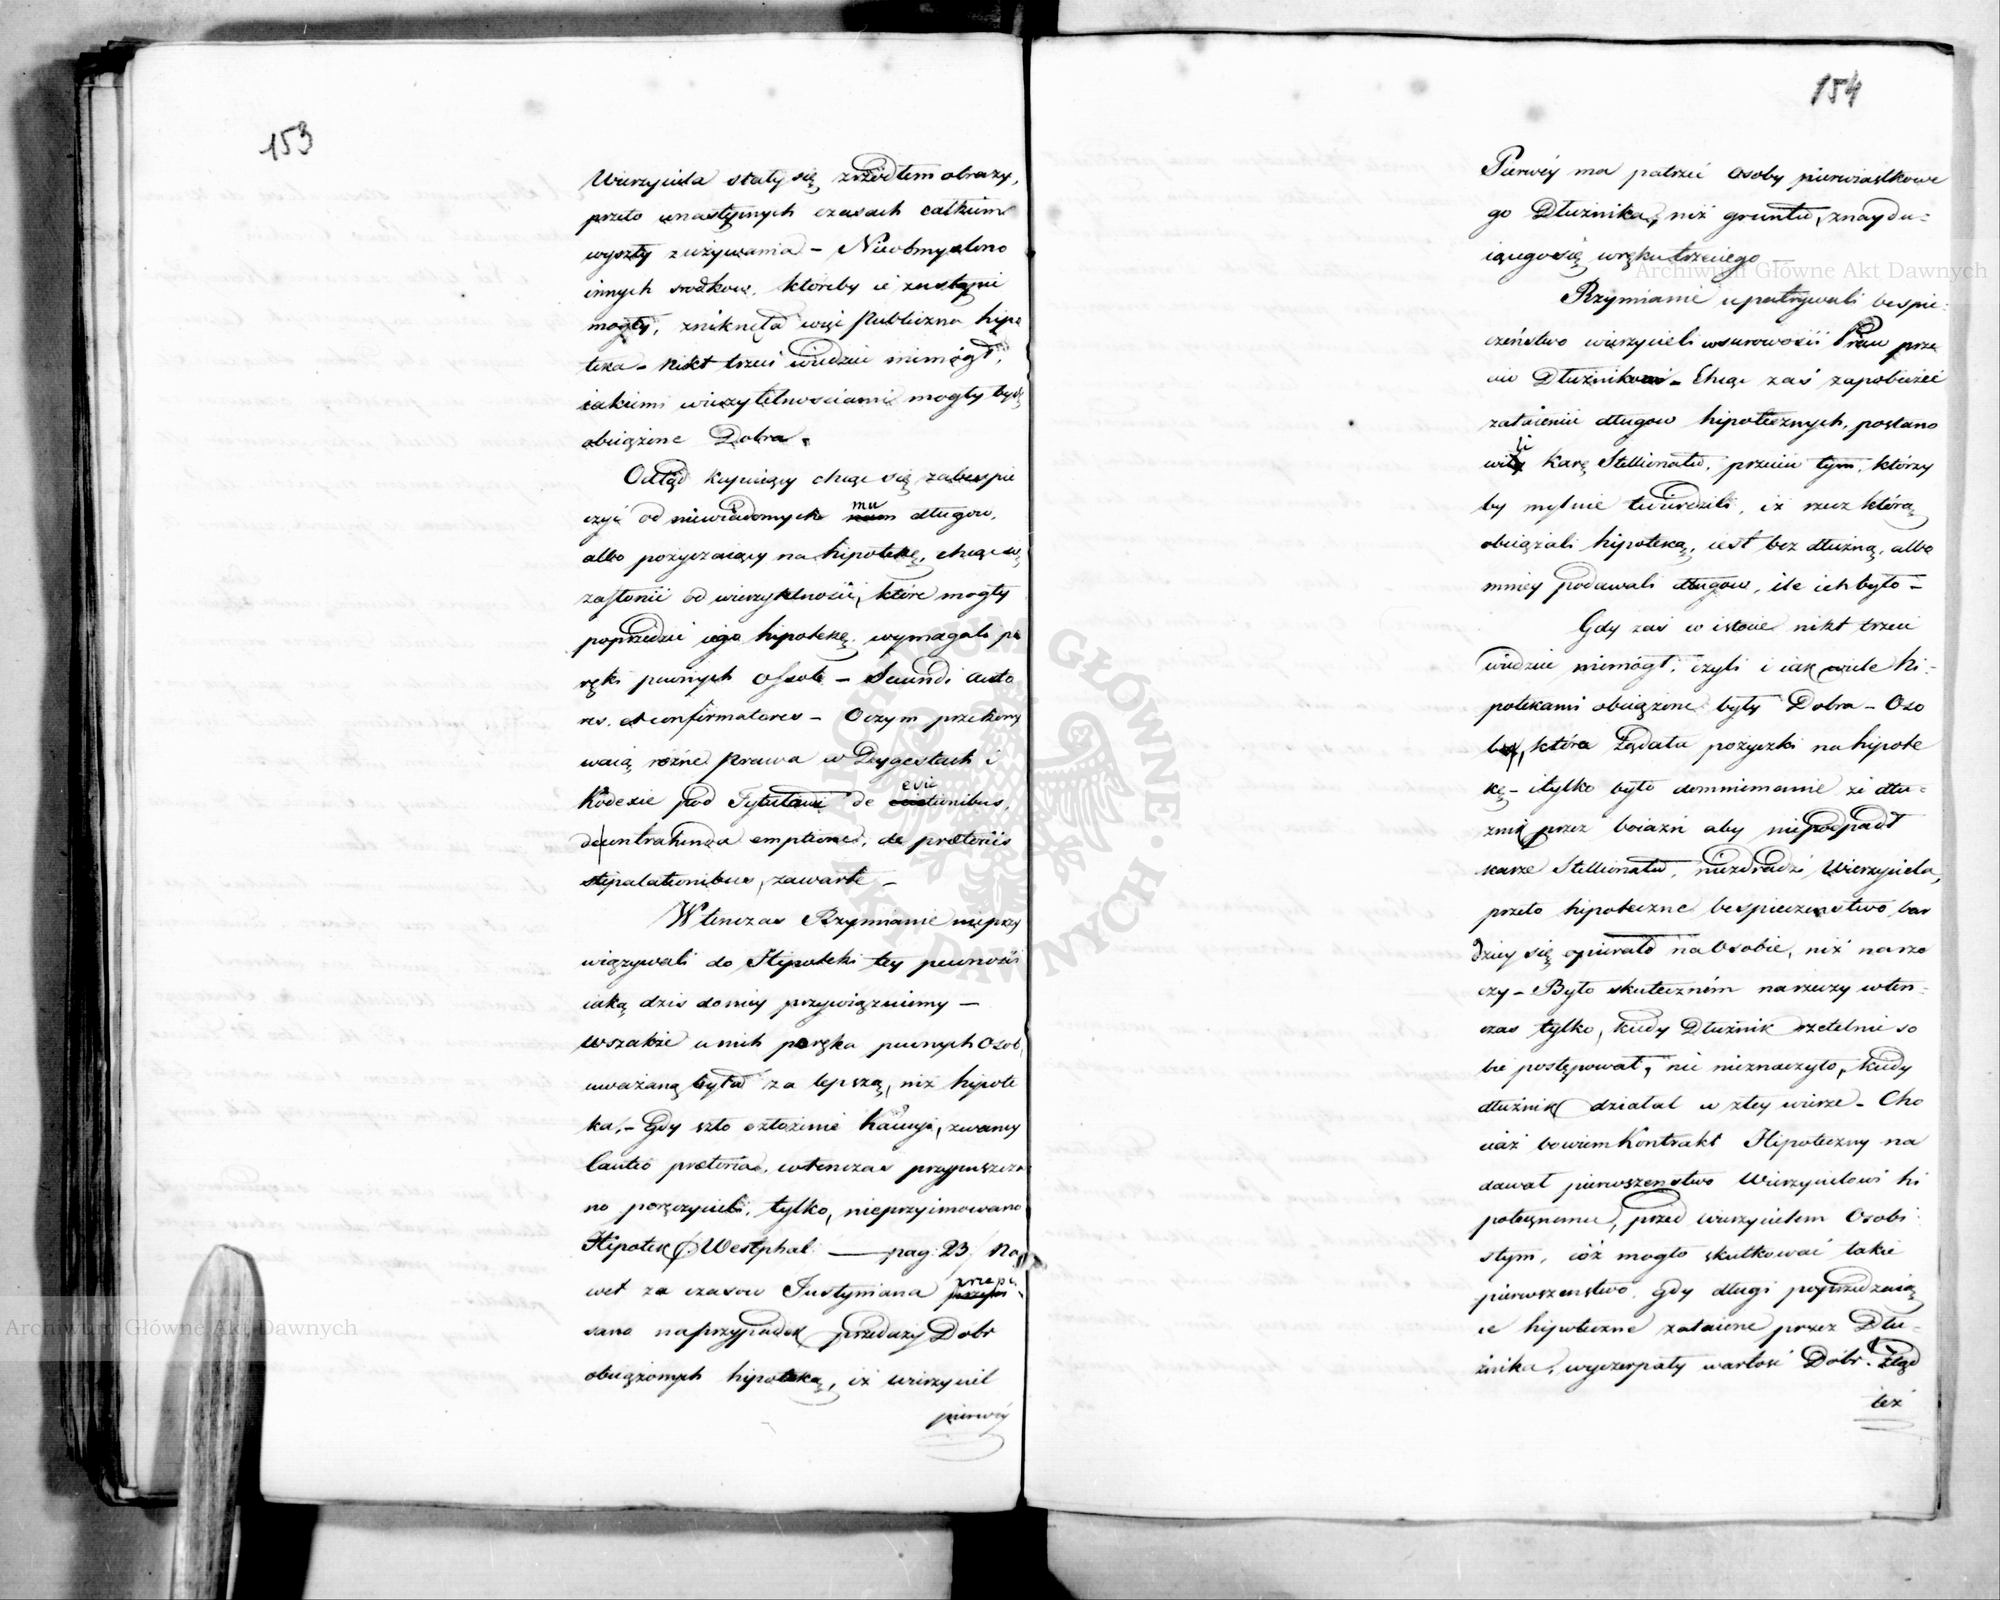 153
Wierzyciela stały się zrzódłem obrazy,
przeto wnastępnych czasach całkiem
wyszły zużywania – Nieobmyslono
innych srodkow, ktoreby ie zastąpić
mogły, zniknęła więc Publiczna hipo
teka – Nikt trzeci wiedzieć niemógł,
iakiemi wierzytelnosciami mogły bydź
obciążone Dobra.
Odtąd kupuiący chcąc się zabespie
czyć od niewiadomych mu długow,
albo pożyczaiący na hipotekę, chcąc się
zasłonić od wierzytelnosci, które mogły
poprzedzić iego hipotekę, wymagali po
ręki pewnych Ossob – Secundi aucto
res, et confirmatores – Oczym przekony
waią różne prawa w Dygestach i
Kodexie pod Tytułami de evictionibus,
de contrahenda emptione, de prætoriis
stipulationibus, zawarte –
Wtenczas Rzymianie nieprzy
wiązywali do Hipoteki tey pewności
iaką dzis doniey przywiązuiemy –
wszakże u nich poręka pewnych Osob,
uważaną była za lepszą, niż hipote
ka. – Gdy szło ozłożenie Kaucyi, zwaney
Cautio prætoria, wtenczas przypuszcza
no poręczycieli, tylko, nieprzyimowano
Hipotek /: Westphal: — pag: 23./ Na
wet za czasow Justyniana przepi
sano naprzypadek przedaży Dobr
obciążonych hipoteką, iż wierzyciel
pierwéy
154
Pierwéy ma patrzeć osoby pierwiastkowe
go Dłużnika, niż gruntu, znaydu-
iącegosię wręku trzeciego –
Rzymianie upatrywali bespie-
czeństwo wierzycieli wsurowości Praw prze
ciw Dłużnikom – Chcąc zaś zapobieżeć
zataieniu długow hipotecznych, postano
wili karę Stellionatu, przeciw tym, którzy
by mylnie twierdzili, iż rzecz którą
obciążali hipoteką, iest bez dłużną, albo
mniey podawali długow, ile ich było –
Gdy zaś w istocie nikt trzeci
wiedzieć niemógł, czyli i iak wiele hi-
potekami obciążone były Dobra – Oso
ba, która żądała pożyczki na hipote
kę – itylko było domniemanie że dłu-
żnik przez boiaźń aby niepodpadł
karze Stellionatu, niezdradzi Wierzyciela,
przeto hipoteczne bespieczenstwo bar
dziey się opierało na Osobie, niż na rze
czy – Było skuteczném narzeczy wten-
czas tylko, kiedy Dłużnik rzetelnie so
bie postępował, nic nieznaczyło, kiedy
dłużnik działał w złey wierze – Cho
ciaż bowiem Kontrakt Hipoteczny na
dawał pierwszenstwo Wierzycielowi hi
potecznemu, przed wierzycielem Osobi
stym, cóż mogło skutkować takie
pierwszenstwo, gdy długi poprzedzaią
ce hipoteczne zataione przez Dłu-
żnika, wyczerpały wartość Dóbr. Ztąd
też